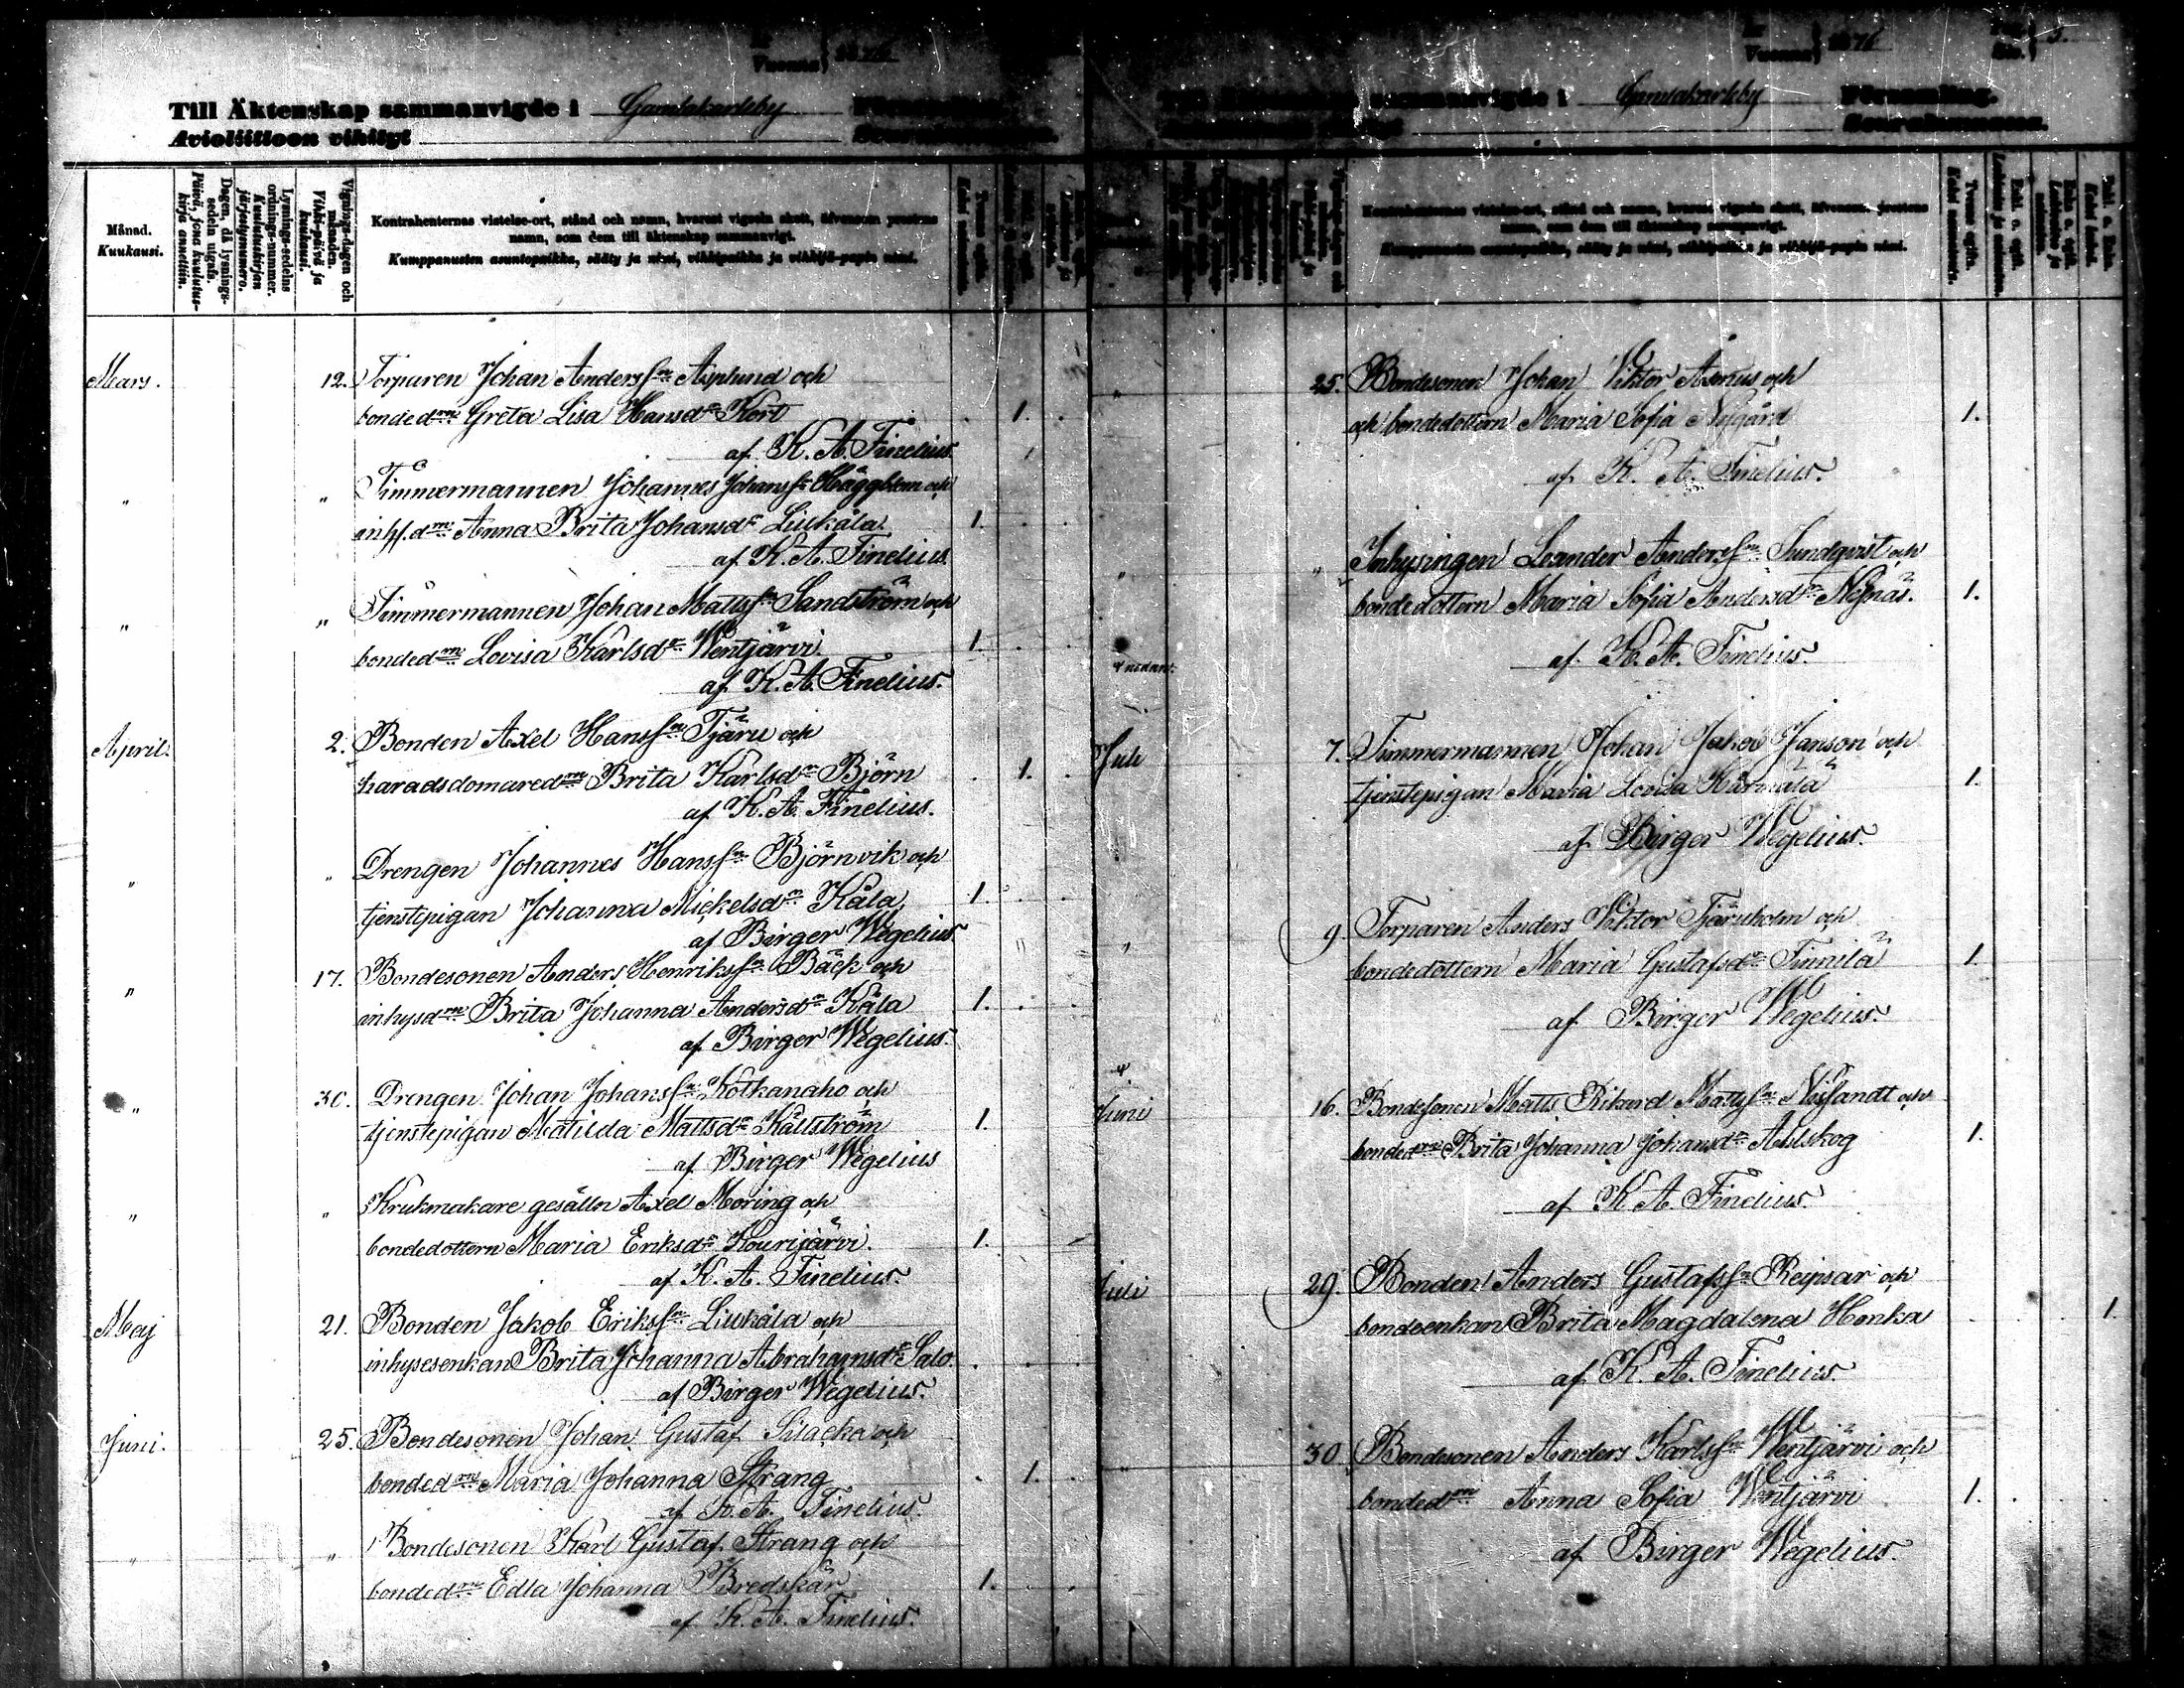 Vuonna
Till Äktenskap sammanvigde i Gamlakarleby
Avioliittoon vihityt
Månad.
Kuukausi.
Dagen, då lysnings-
sedeln utgafs.
Päivä, jona kuulutus-
kirja annettiin.
Lysnings-sedelns
ordnings-nummer.
Kuulutuskirjan
järjestysnumero.
Vignings-dagen och
månaden.
Vihkipäivä ja
kuukausi.
Kontrahenternas vistelse-ort, stånd och namn, hvarest vigseln skett, äfvensom prestens
namn, som dem till äktenskap sammanvigt.
Kumppanusten asuntopaikka, sääty ja nimi, vihkipaikka ja vihkijä-papin nimi.
Mars. 12. Torparen Johan Anderssn Asplund och
bondedrn Greta Lisa Hansdr Kort 1.
af K. A. Finelius.
" " Timmermannen Johannes Johanssn Häggblom och
inhs.drn Anna Brita Johansdr Liukåla 1.
af K. A. Finelius.
" " Timmermannen Johan Mattssn Sandström och
bondedrn Lovisa Karlsdr Wentjärvi. 1.
af K. A. Finelius.
April. 2. Bonden Axel Hanssn Tjäru och
häradsdomaredrn Brita Karlsdr Björn 1.
af K. A. Finelius.
" " Drengen Johannes Hanssn Björnvik och
tjenstepigan Johanna Mickelsdr Kåla 1.
af Birger Wegelius
" 17. Bondesonen Anders Henrikssn Bäck och
inhysdrn Brita Johanna Andersdr Kåla 1.
af Birger Wegelius.
" 30. Drengen Johan Johanssn Kotkanaho och
tjenstepigan Matilda Mattsdr Källström 1.
af Birger Wegelius
" " Krukmakare gesällen Axel Moring och
bondedottern Maria Eriksdr Kourijärvi. 1.
af K. A. Finelius.
Maj 21. Bonden Jakob Erikssn Liukåla och
inhysesenkan Brita Johanna Abrahamsdr Salo.
af Birger Wegelius.
Juni. 25. Bondesonen Johan Gustaf Silacka och
bondedrn Maria Johanna Strang 1.
af K. A. Finelius.
" " Bondesonen Karl Gustaf Strang och
bondedrn Edla Johanna Bredskär 1.
af K. A. Finelius.
Vuonna 1876 5.
sammanvigde i Gamlakarleby Församling.
Seurakunnassa.
Kontrahenternas vistelse-ort, stånd och namn, hvarest vigseln skett, äfvensom prestens
namn, som dem till äktenskap sammanvigt.
Kumppanusten asuntopaikka, sääty ja nimi, vihkipaikka ja vihkijä-papin nimi.
" 25. Bondesonen Johan Viktor Asmus och
och bondedottern Maria Sofia Nygård 1.
af K. A. Finelius.
" " Inhysingen Leander Anderssn Sundqvist och
bondedottern Maria Sofia Andersdr 1.
af K. A. Finelius.
Juli 7. Timmermannen Johan Jakob Janson och
tjenstepigan Maria Lovisa Härmälä 1.
af Birger Wegelius.
" 9. Torparen Anders Viktor Tjäruholm och
bondedottern Maria Gustafsdr Finnilä 1.
af Birger Wegelius.
Juni 16. Bondesonen Matts Rikard Mattssn Nissandt och
bondedrn Brita Johanna Johansdr Ahlskog 1.
af K. A. Finelius.
Juli 29. Bonden Anders Gustafssn Reipsar och
bondeenkan Brita Magdalena Honka 1.
af K. A. Finelius.
" 30 Bondesonen Anders Karlssn Wentjärvi och
bondedrn Anna Sofia Wentjärvi 1.
af Birger Wegelius.